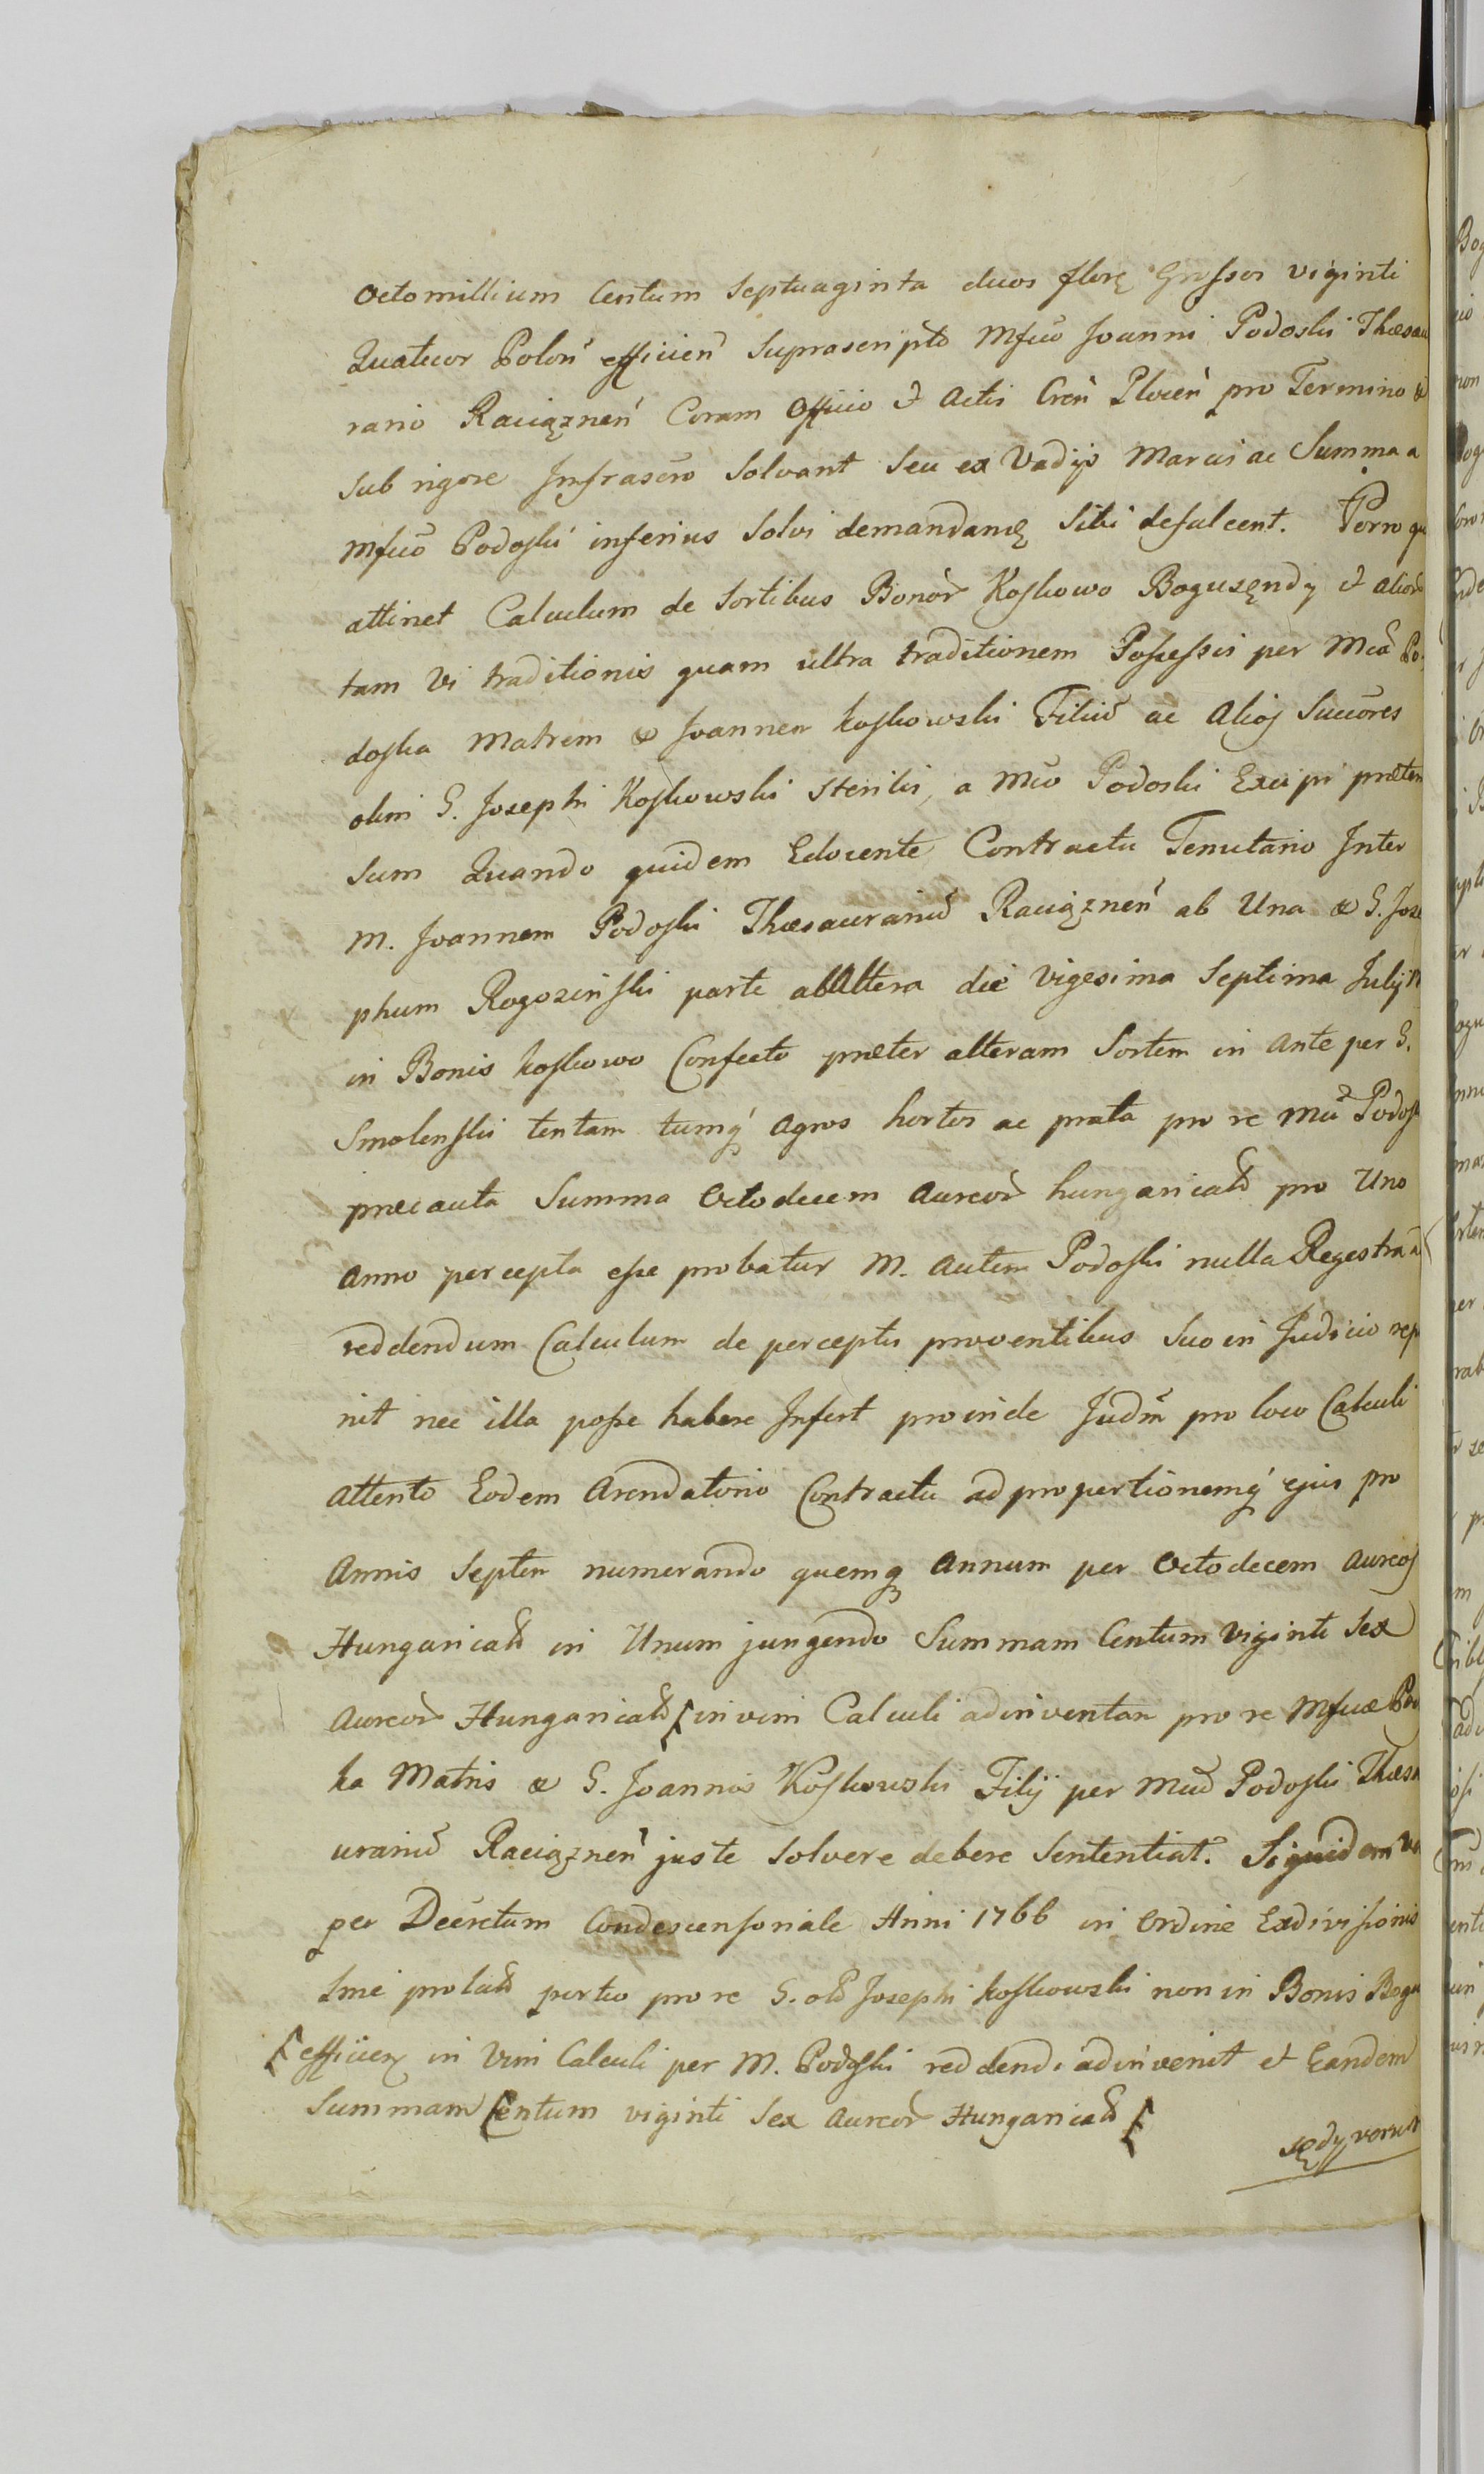 Octomillium Centum Septuaginta duos flor. Grossos viginti
Quatuor Polon̄ efficien̄ Suprascripto Mfco Joanni Podoski Thesau
rario Raciąznen̄ Coram Officio et Actis Cren̄ Plocen̄ pro Termino &
sub rigore Infrascr̄o Solvant seu ex Vadijs Marcis ac Summa a
Mfco Podoski inferius Solvi demandanda Sibi defalcent. Porro qu
attinet Calculum de Sortibus Bonor̄ Koskowo Bogusęndy et alior̄
tam vi traditionis quam ultra traditionem Possessis per Mcā Po
doska Matrem & Joannem Koskowski Filiū ac Alios Succōres
olim G. Josephi Koskowski Sterilis, a Mco Podoski Excipi præten
sum Quando quidem Edocente Contractu Tenutario Inter
M. Joannem Podoski Thesaurariū Raciąznen̄ ab Una & G. Jose
phum Rogozinski parte ab Altera die Vigesima Septima Julij
in Bonis Koskowo Confecto præter alteram Sortem in ante per G.
Smolenski tentam tumq́ Agros hortos ac prata pro re Mcī Podosk
præcauta Summa Octodecem Aureor̄ hungaricał pro Uno
Anno percepta esse probatur M. autem Podoski nulla Regestra a
reddendum Calculum de perceptis proventibus suo in Judicio repo
nit nec illa posse habere Infert proinde Judm̄ pro loco Calculi
attento Eodem Arendatorio Contractu ad proportionemq́ ejus pro
Annis Septem numerando quemq Annum per Octodecem Aureos
Hungaricał in Unum jungendo Summam Centum Viginti Sex
Aureor̄ Hungaricał [in vim Calculi adinventam pro re Mfcæ Podos
ka Matris & G. Joannis Koskowski Filij per Mcū Podoski Thesa
urariū Raciąznen̄ juste solvere debere Sententiat. Siquidem vero
per Decretum Condescensoriale Anni 1766 in Ordine Exdivisionis
Sme prolał portio pro re G. oł Josephi Koskowski non in Bonis Bogu
[efficien in Vim Calculi per M. Podoski reddendi adinvenit et Eandem
Summam Centum viginti Sex Aureor̄ Hungaricał [
sędy verum